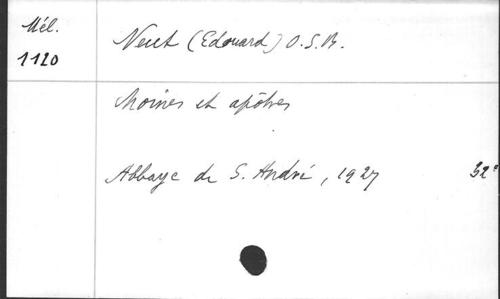 Mél.
1120
Neut (Edouard) O.S.B.
Moines et apôtres
Abbaye de S. André, 1927
32°